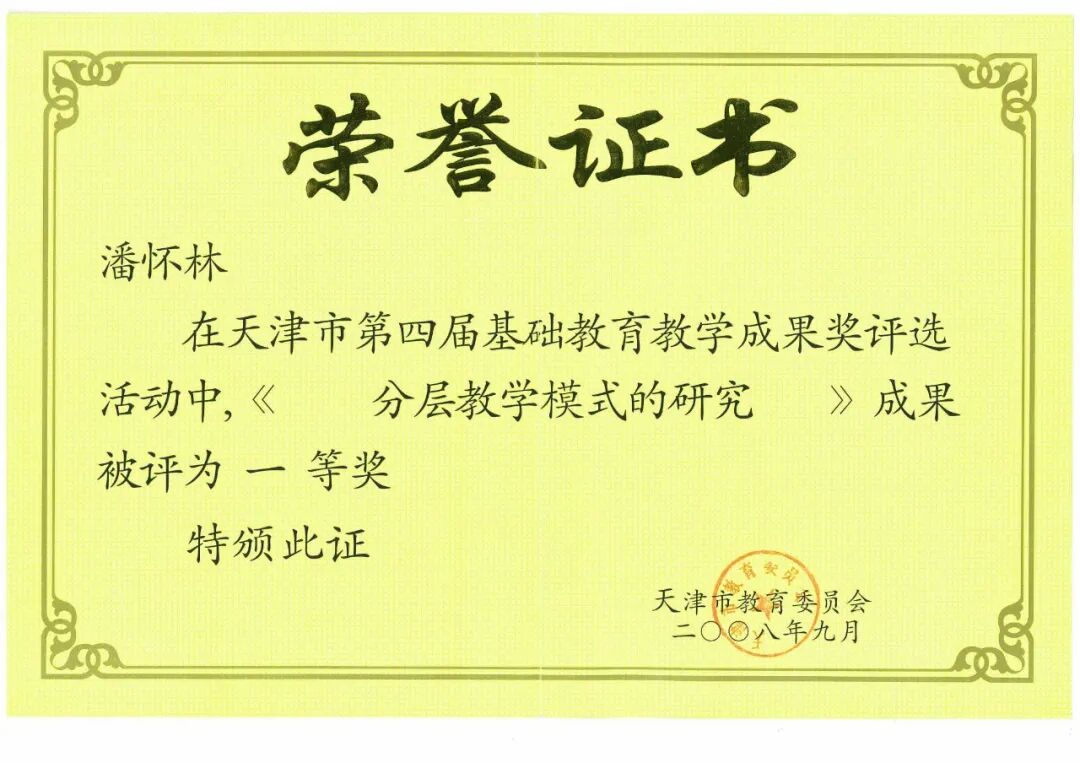 荣誉证书
潘怀林
在天津市第四届基础教育教学成果奖评选
活动中,《 分层教学模式的研究 》成果
被评为 一 等奖
特颁此证
天津市教育委员会
二〇〇八年九月